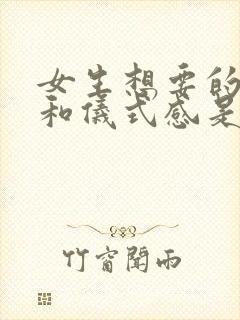 女生想要的
和儀式感是
竹窗聞雨